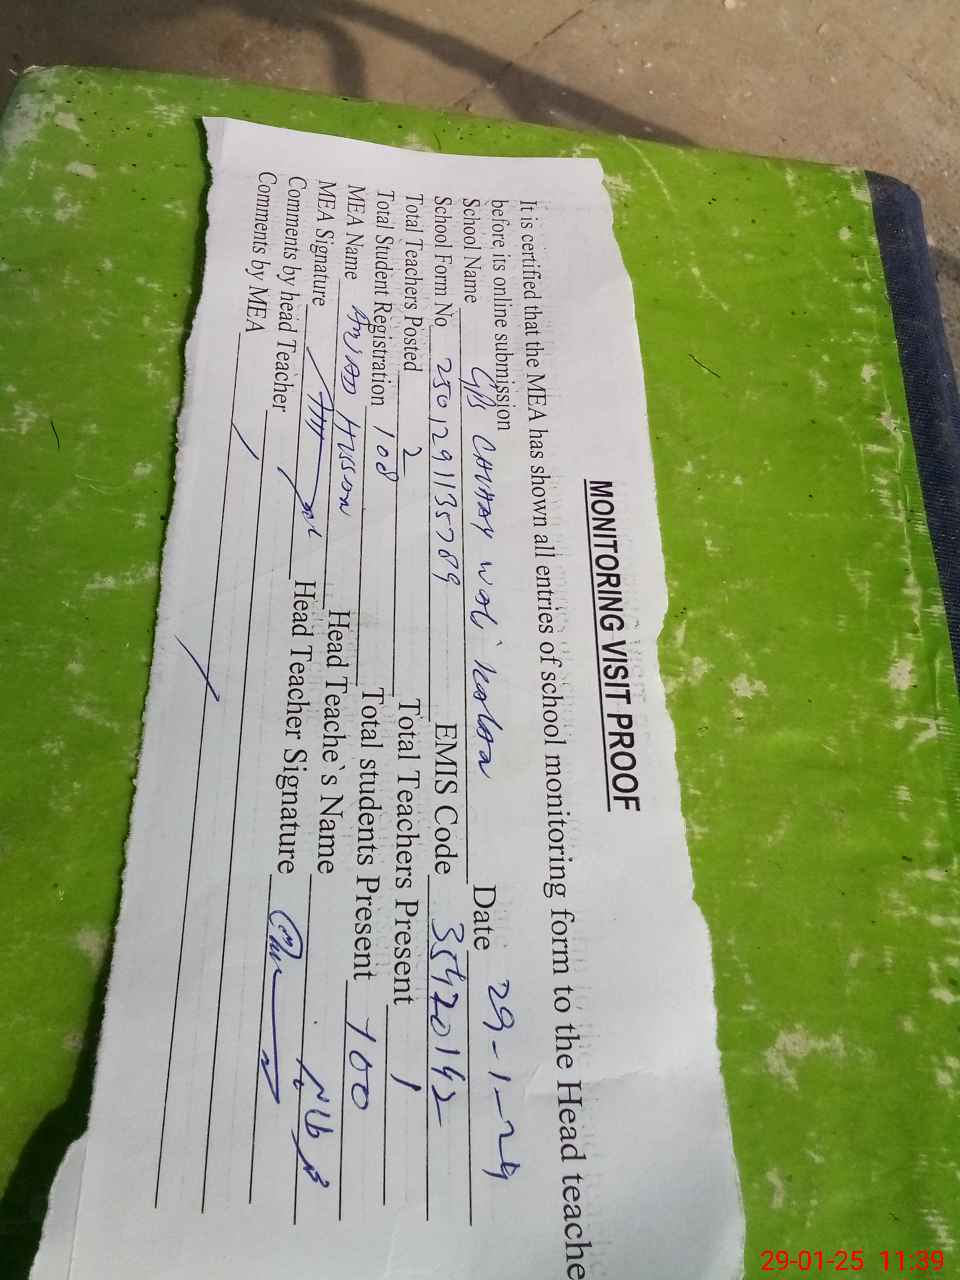 MONITORING VISIT PROOF
It is certified that the MEA has shown all entries of school monitoring form to the Head teache
before its online submission
School Name GPS Wali Date 29-1-24
School Form No 2501291135789 EMIS Code 35420142
Total Teachers Posted 2 Total Teachers Present 1
Total Student Registration 108 Total students Present 100
MEA Name AMJAD HUSSAN Head Teache`s Name
MEA Signature Head Teacher Signature
Comments by head Teacher
Comments by MEA
29-01-25 11:39